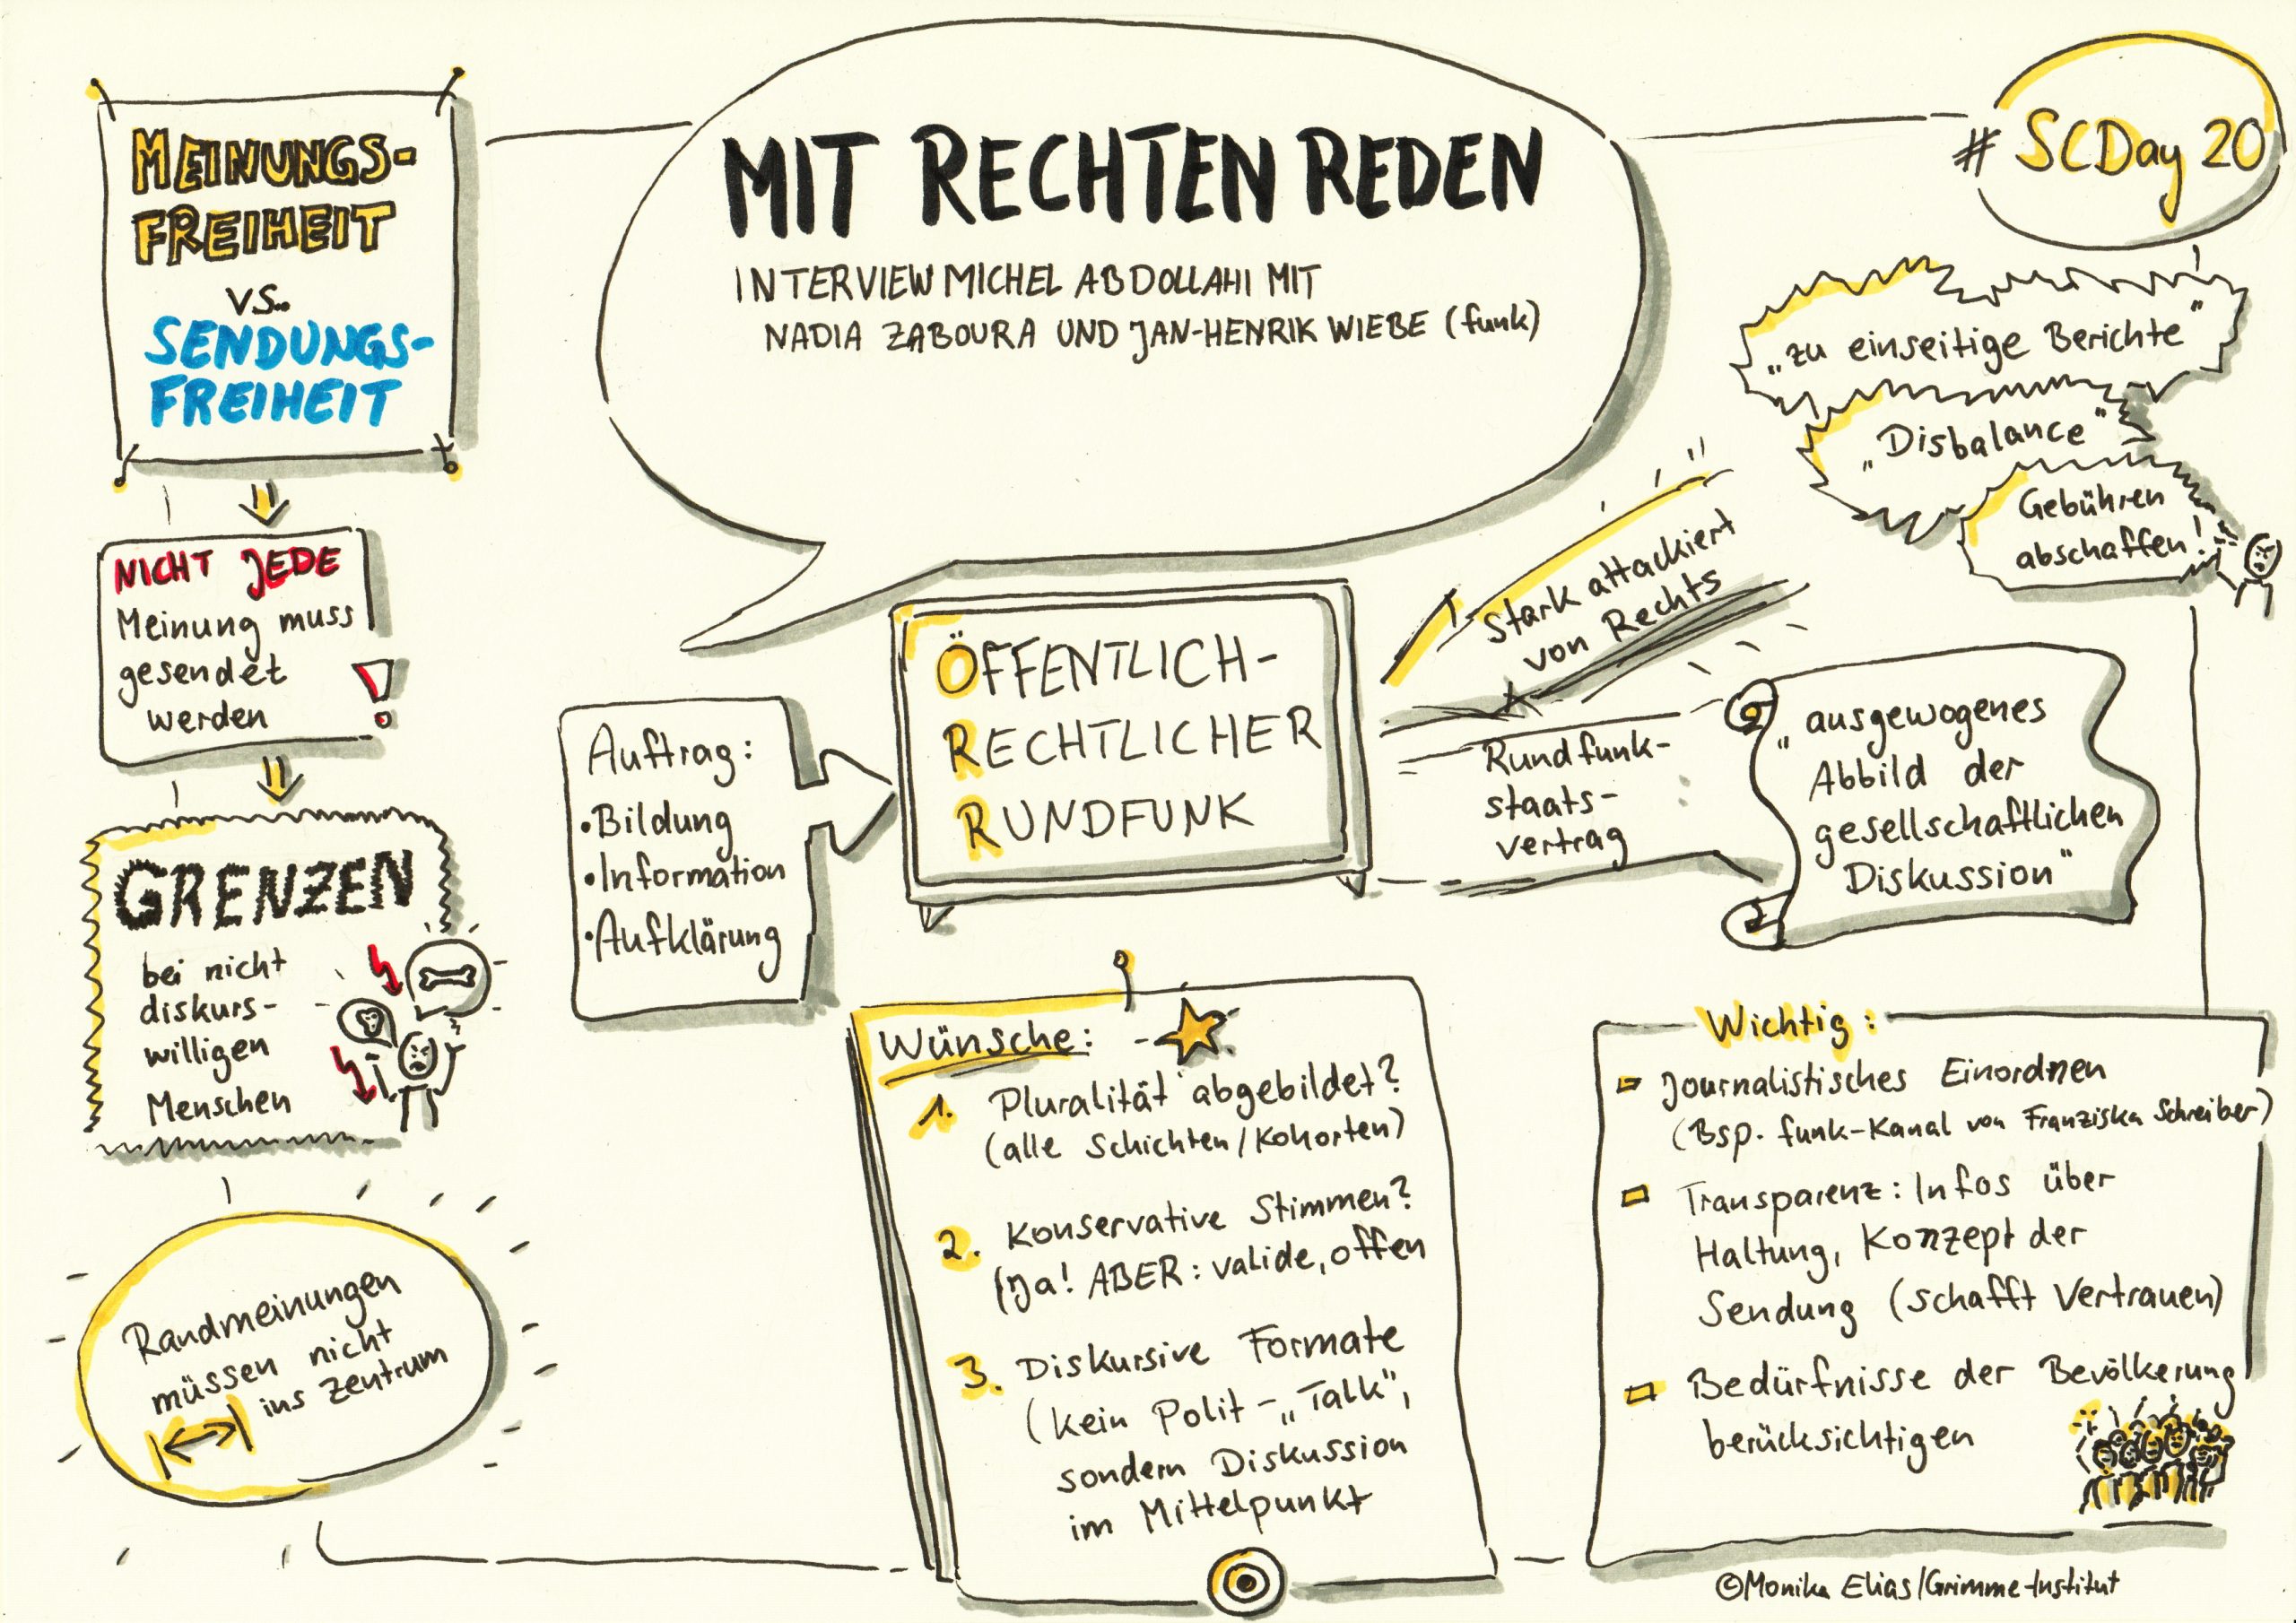 MEINUNGS-
FREIHEIT
VS.
SENDUNGS-
FREIHEIT
NICHT JEDE
Meinung muss
gesendet
werden
!
GRENZEN
bei nicht
diskurs-
willigen
Menschen
Randmeinungen
müssen nicht
ins Zentrum
MIT RECHTEN REDEN
INTERVIEW MICHEL ABDOLLAHI MIT
NADIA ZABOURA UND JAN-HENRIK WIEBE (funk)
# SCDay 20
„zu einseitige Berichte"
„Disbalance"
Gebühren
abschaffen!
Auftrag:
• Bildung
• Information
• Aufklärung
ÖFFENTLICH-
RECHTLICHER
RUNDFUNK
Stark attackiert
von Rechts
Rundfunk-
staats-
vertrag
„ausgewogenes
Abbild der
gesellschaftlichen
Diskussion"
Wünsche:
1. Pluralität abgebildet?
(alle Schichten/Kohorten)
2. Konservative Stimmen?
(Ja! ABER: valide, offen
3. Diskursive Formate
(kein Polit-„Talk",
sondern Diskussion
im Mittelpunkt
Wichtig:
Journalistisches Einordnen
(Bsp. funk-Kanal von Franziska Schreiber)
Transparenz: Infos über
Haltung, Konzept der
Sendung (schafft Vertrauen)
Bedürfnisse der Bevölkerung
berücksichtigen
©Monika Elias/Grimme-Institut